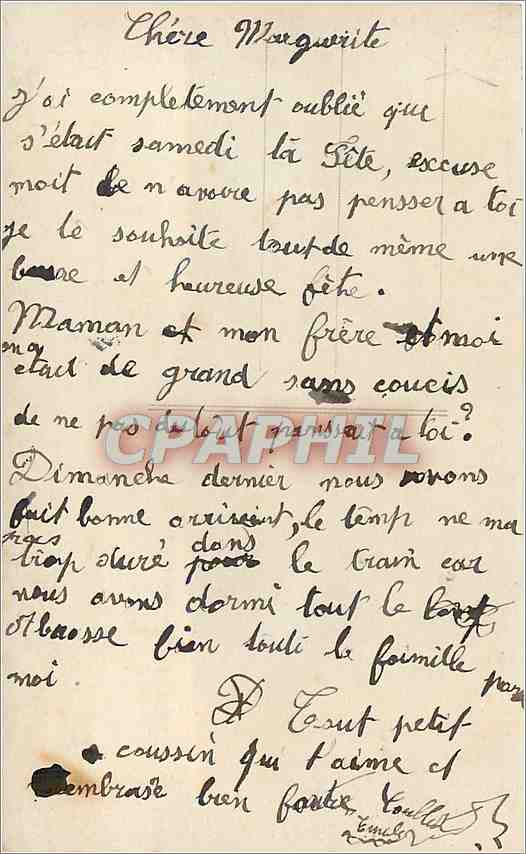 Chére Marguerite
J'ai completement oublié que
s'étáit samedi tà fête, excuse
moit de n avoire pas pensser a toi
je te souhaite tout de même une
bonne et heureuse fête.
Maman et mon frère et moi
on a
était de grand sans çoucis
de ne pas du tout panssait a toi?
CPAPHIL
Dimanche dernier nous avons
fait bonne arrivient, le temp ne ma
pas
trop duré dans le train car
nous avons dormi tout le
Abrasse bien touti la famille par
moi.
Tout petit
coussin qui t'aime et
embrase bien